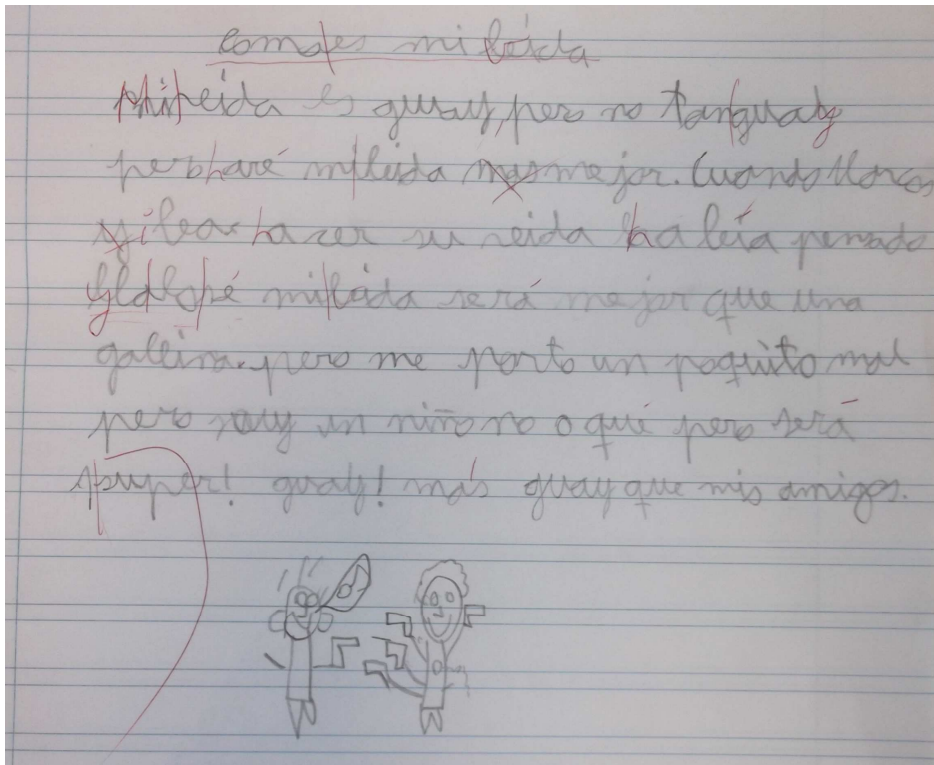 comoes mi leida
Mi leida es guay, pero no tanguay
pero haré mi leida mas mejor. Cuando
hacer su leida ha leia pensado
mi leida será mejor que una
galeina. pero me porto un poquito mal
pero soy un niño no o qué pero será
super! guay! más guay que mis amigos.